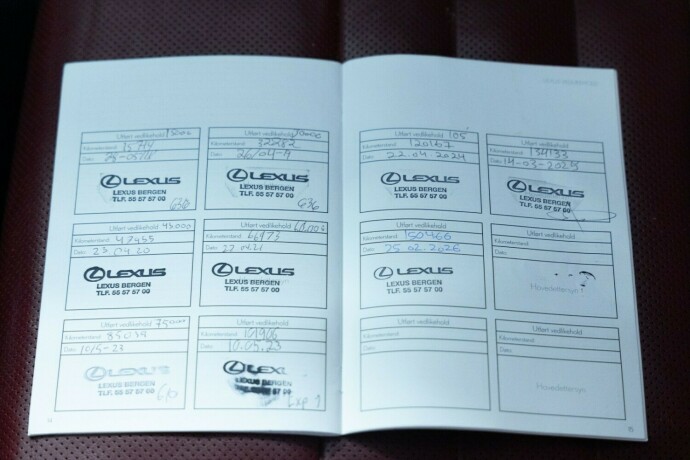 Utført vedlikehold 15000
Kilometerstand
Dato
LEXUS
LEXUS BERGEN
TLF. 55 57 57 00
Utført vedlikehold
Kilometerstand 32282
Dato 26/04-19
LEXUS
LEXUS BERGEN
TLF. 55 57 57 00
Utført vedlikehold 45000
Kilometerstand 47455
Dato 23.04.20
LEXUS
LEXUS BERGEN
TLF. 55 57 57 00
Utført vedlikehold
Kilometerstand 66973
Dato 22.04.21
LEXUS
LEXUS BERGEN
TLF. 55 57 57 00
Utført vedlikehold 75000
Kilometerstand 85039
Dato 10/5-23
LEXUS
LEXUS BERGEN
TLF. 55 57 57 00
Utført vedlikehold
Kilometerstand 101906
Dato 10.05.23
LEXUS
LEXUS BERGEN
TLF. 55 57 57 00
14
Utført vedlikehold 105
Kilometerstand 120167
Dato 22.04.2024
LEXUS
LEXUS BERGEN
TLF. 55 57 57 00
Utført vedlikehold
Kilometerstand 134133
Dato 14-03-2025
LEXUS
LEXUS BERGEN
TLF. 55 57 57 00
Utført vedlikehold
Kilometerstand 150466
Dato 25.02.2026
LEXUS
LEXUS BERGEN
TLF. 55 57 57 00
Utført vedlikehold
Kilometerstand
Dato
Utført vedlikehold
Kilometerstand
Dato
Utført vedlikehold
Kilometerstand
Dato
15